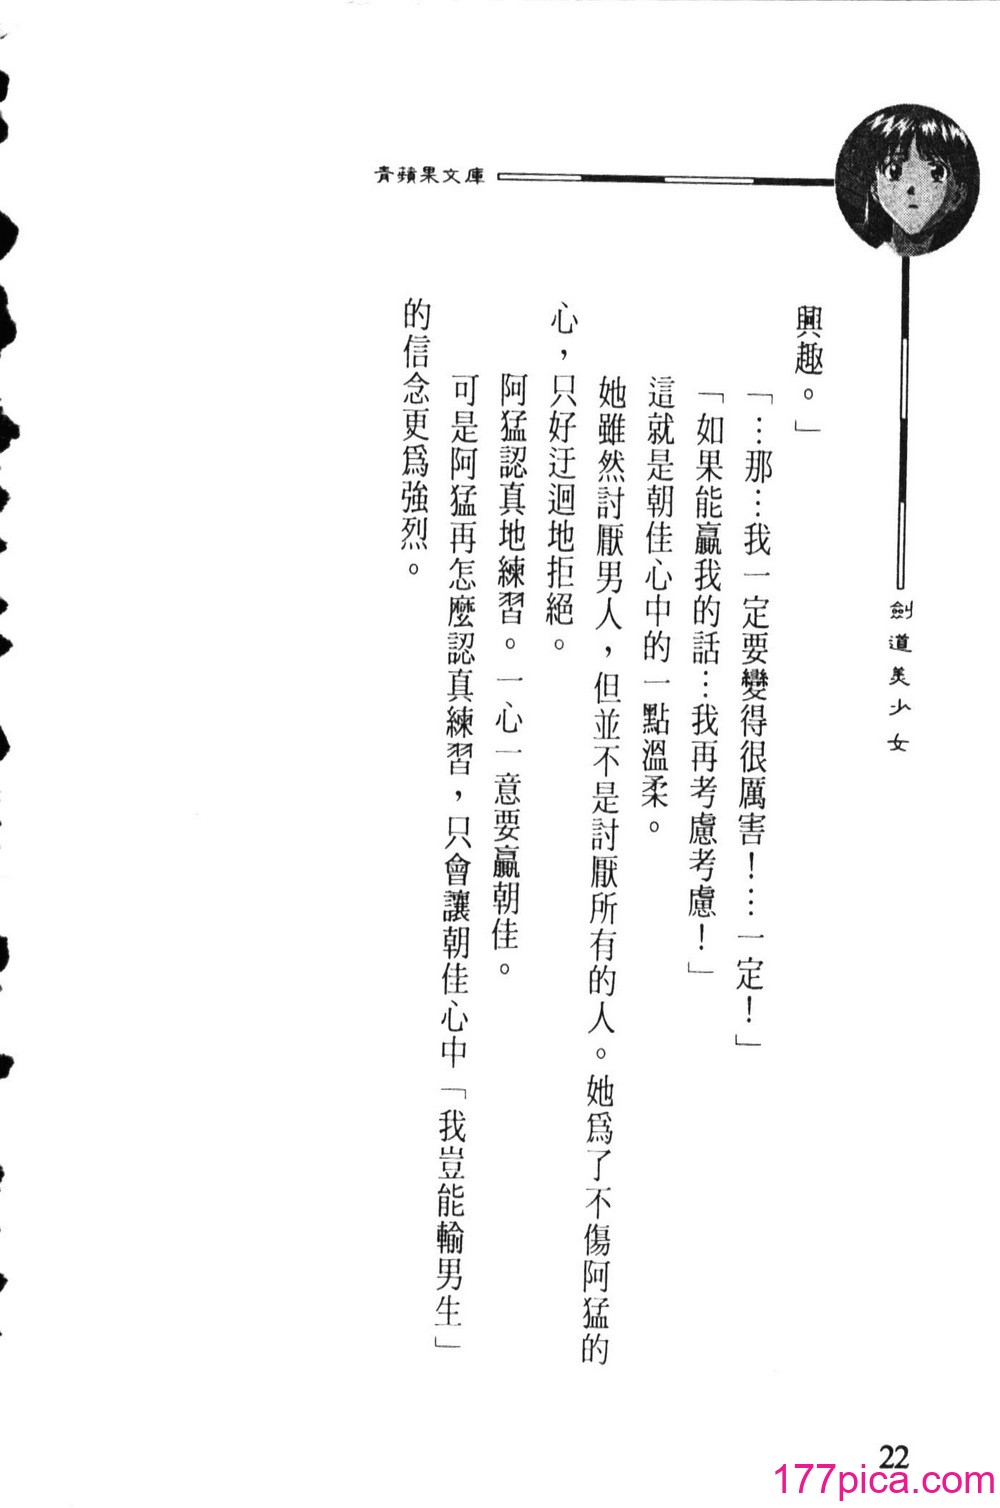 青蘋果文庫
劍道美少女
興趣。」
「…那…我一定要變得很厲害！…一定！」
「如果能贏我的話…我再考慮考慮！」
這就是朝佳心中的一點溫柔。
她雖然討厭男人，但並不是討厭所有的人。她爲了不傷阿猛的
心，只好迂迴地拒絕。
阿猛認真地練習。一心一意要贏朝佳。
可是阿猛再怎麼認真練習，只會讓朝佳心中「我豈能輸男生」
的信念更爲強烈。
22
177pica.com